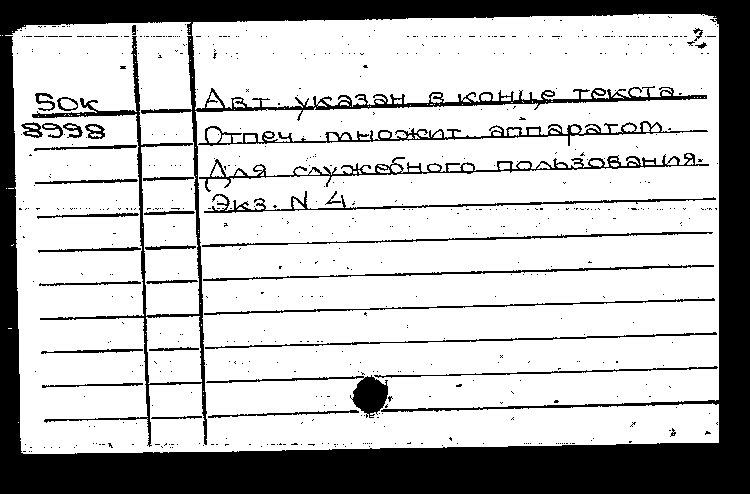 2
50к Авт. указан в конце текста.
8998 Отпеч. множит. аппаратом.
Для служебного пользования.
Экз. N 4.